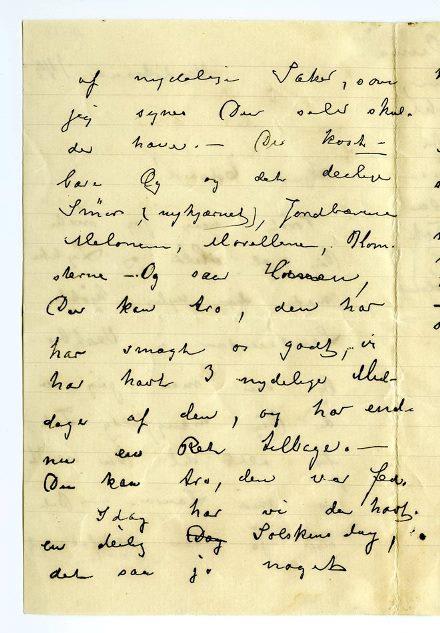 af nydelige Saker, som
jeg synes Du selv skul-
de have. — De kost-
bare Æg og det deilige
Smör, (nykjærnet), Jordbærrene
Melonen, Morellene, Blom-
sterne — Og saa Hønen,
Du kan tro, den har
har smagt os godt, vi
har havt 3 nydelige Mid-
dager af den, og har end-
nu en Rett tilbage. —
Du kan tro, den var fed.
Idag har vi da havt
en deilig Dag Solskinsdag,
det saa jo noget